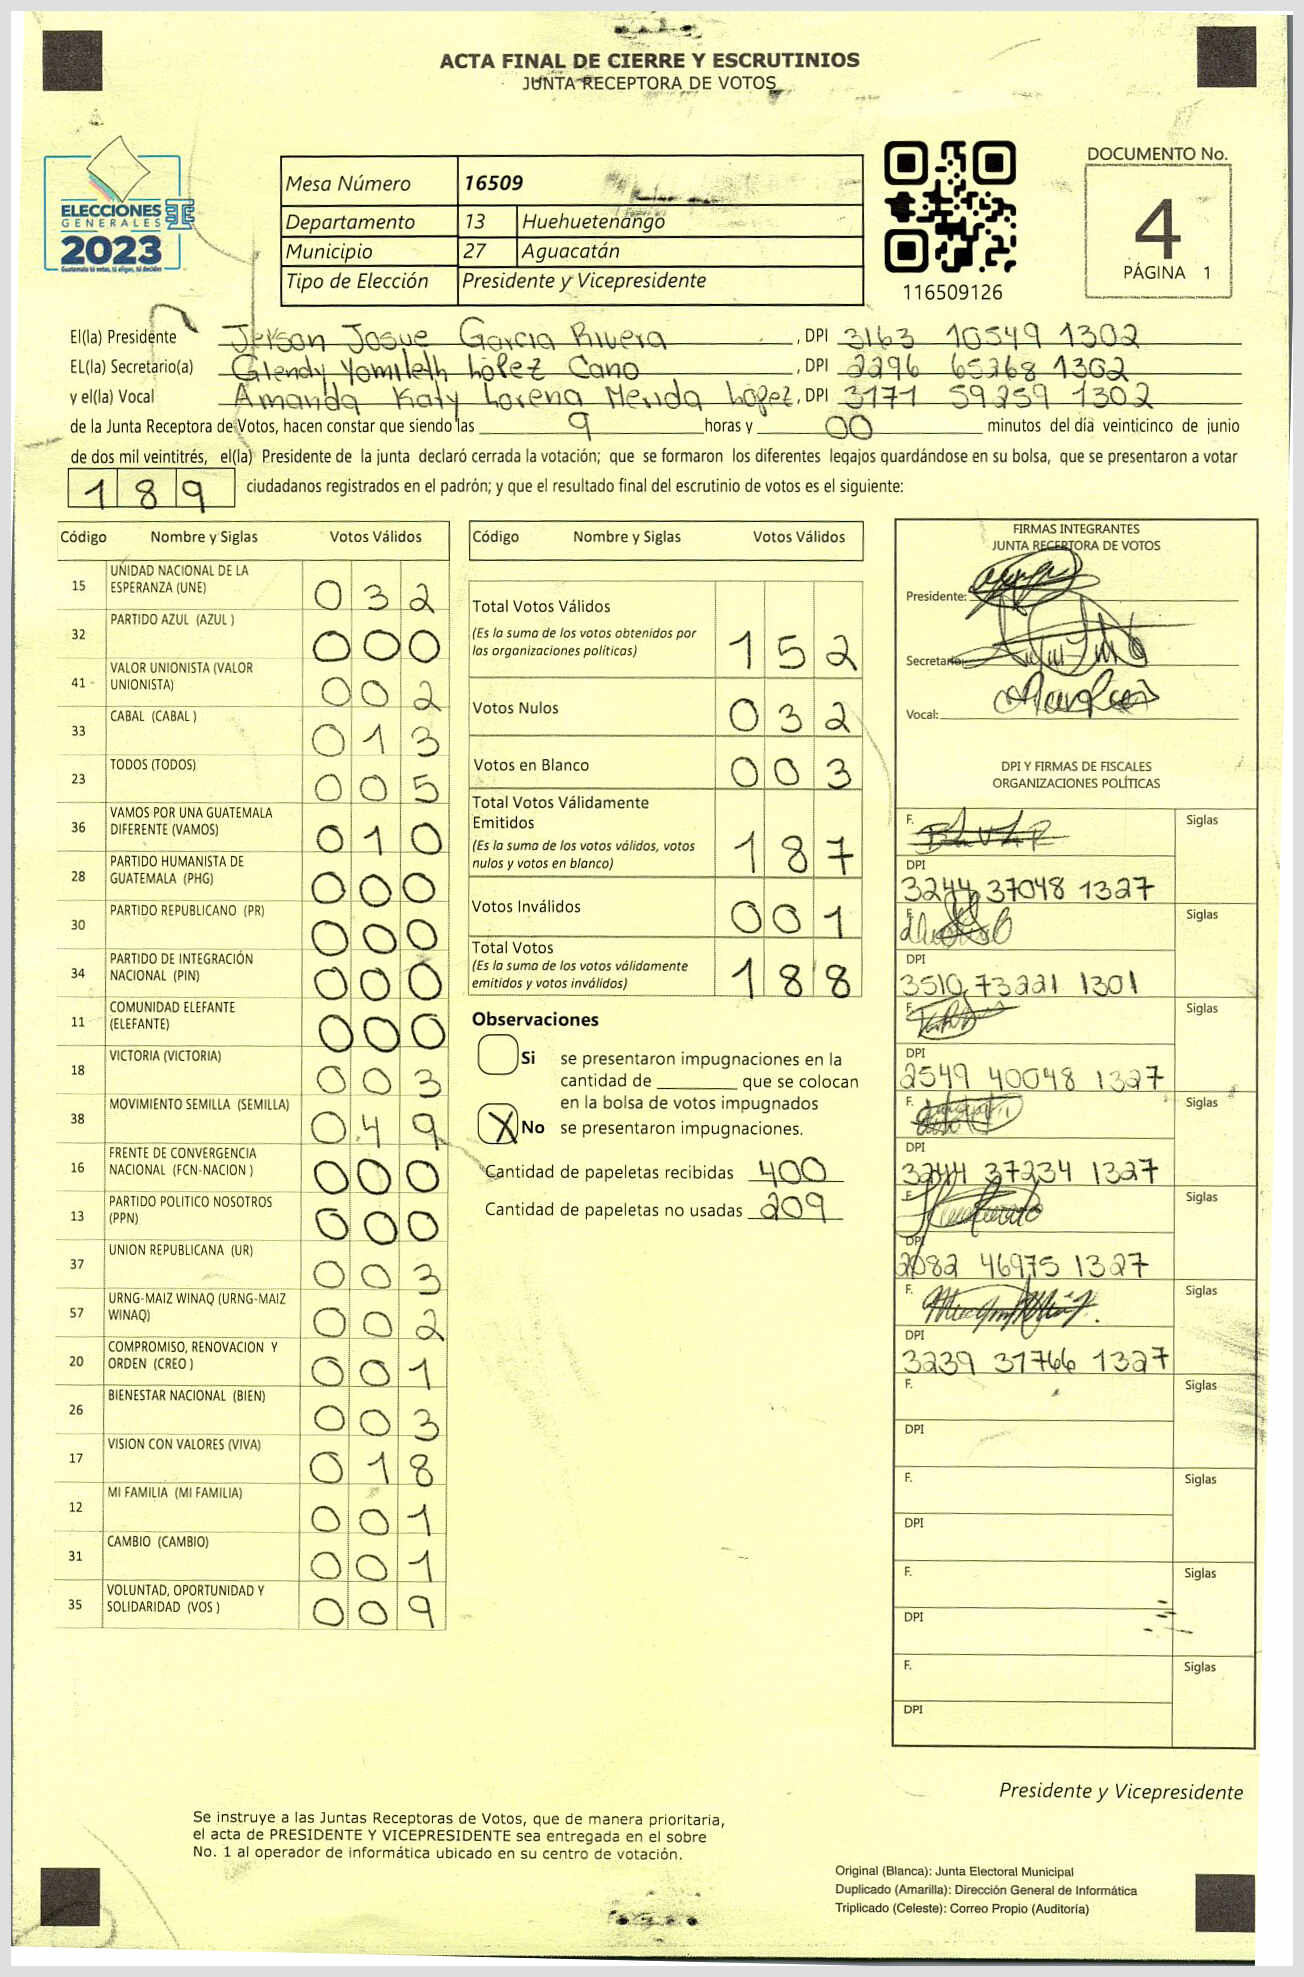 ACTA FINAL DE CIERRE Y ESCRUTINIOS
JUNTA RECEPTORA DE VOTOS
ELECCIONES
GENERALES
2023
Guatemala tú votas, tú eliges, tú decides
Mesa Número 16509
Departamento 13 Huehuetenango
Municipio 27 Aguacatán
Tipo de Elección Presidente y Vicepresidente
116509126
DOCUMENTO No.
4
PÁGINA 1
El(la) Presidente Jerson Josue Garcia Rivera, DPI 3163 10549 1302
EL(la) Secretario(a) Glendy Yomileth López Cano, DPI 2296 65268 1302
y el(la) Vocal Amanda Katy Lorena Merida López, DPI 3171 59259 1302
de la Junta Receptora de Votos, hacen constar que siendo las 9 horas y 00 minutos del día veinticinco de junio
de dos mil veintitrés, el(la) Presidente de la junta declaró cerrada la votación; que se formaron los diferentes legajos guardándose en su bolsa, que se presentaron a votar
189 ciudadanos registrados en el padrón; y que el resultado final del escrutinio de votos es el siguiente:
Código Nombre y Siglas Votos Válidos
15 UNIDAD NACIONAL DE LA ESPERANZA (UNE) 032
32 PARTIDO AZUL (AZUL ) 000
41 VALOR UNIONISTA (VALOR UNIONISTA) 002
33 CABAL (CABAL ) 013
23 TODOS (TODOS) 005
36 VAMOS POR UNA GUATEMALA DIFERENTE (VAMOS) 010
28 PARTIDO HUMANISTA DE GUATEMALA (PHG) 000
30 PARTIDO REPUBLICANO (PR) 000
34 PARTIDO DE INTEGRACIÓN NACIONAL (PIN) 000
11 COMUNIDAD ELEFANTE (ELEFANTE) 000
18 VICTORIA (VICTORIA) 003
38 MOVIMIENTO SEMILLA (SEMILLA) 049
16 FRENTE DE CONVERGENCIA NACIONAL (FCN-NACION ) 000
13 PARTIDO POLITICO NOSOTROS (PPN) 000
37 UNION REPUBLICANA (UR) 003
57 URNG-MAIZ WINAQ (URNG-MAIZ WINAQ) 002
20 COMPROMISO, RENOVACION Y ORDEN (CREO ) 001
26 BIENESTAR NACIONAL (BIEN) 003
17 VISION CON VALORES (VIVA) 018
12 MI FAMILIA (MI FAMILIA) 001
31 CAMBIO (CAMBIO) 001
35 VOLUNTAD, OPORTUNIDAD Y SOLIDARIDAD (VOS ) 009
Código Nombre y Siglas Votos Válidos
Total Votos Válidos
(Es la suma de los votos obtenidos por
las organizaciones políticas) 152
Votos Nulos 032
Votos en Blanco 003
Total Votos Válidamente
Emitidos
(Es la suma de los votos válidos, votos
nulos y votos en blanco) 187
Votos Inválidos 001
Total Votos
(Es la suma de los votos válidamente
emitidos y votos inválidos) 188
Observaciones
Si se presentaron impugnaciones en la
cantidad de ________ que se colocan
en la bolsa de votos impugnados
X No se presentaron impugnaciones.
Cantidad de papeletas recibidas 400
Cantidad de papeletas no usadas 209
FIRMAS INTEGRANTES
JUNTA RECEPTORA DE VOTOS
Presidente:
Secretario:
Vocal:
DPI Y FIRMAS DE FISCALES
ORGANIZACIONES POLÍTICAS
F. Siglas
DPI
3244 37048 1327
F. Siglas
DPI
3510 73221 1301
F. Siglas
DPI
2549 40048 1327
F. Siglas
DPI
3244 37234 1327
F. Siglas
DPI
2082 46975 1327
F. Siglas
DPI
3239 31766 1327
F. Siglas
DPI
F. Siglas
DPI
F. Siglas
DPI
F. Siglas
DPI
Presidente y Vicepresidente
Se instruye a las Juntas Receptoras de Votos, que de manera prioritaria,
el acta de PRESIDENTE Y VICEPRESIDENTE sea entregada en el sobre
No. 1 al operador de informática ubicado en su centro de votación.
Original (Blanca): Junta Electoral Municipal
Duplicado (Amarilla): Dirección General de Informática
Triplicado (Celeste): Correo Propio (Auditoría)